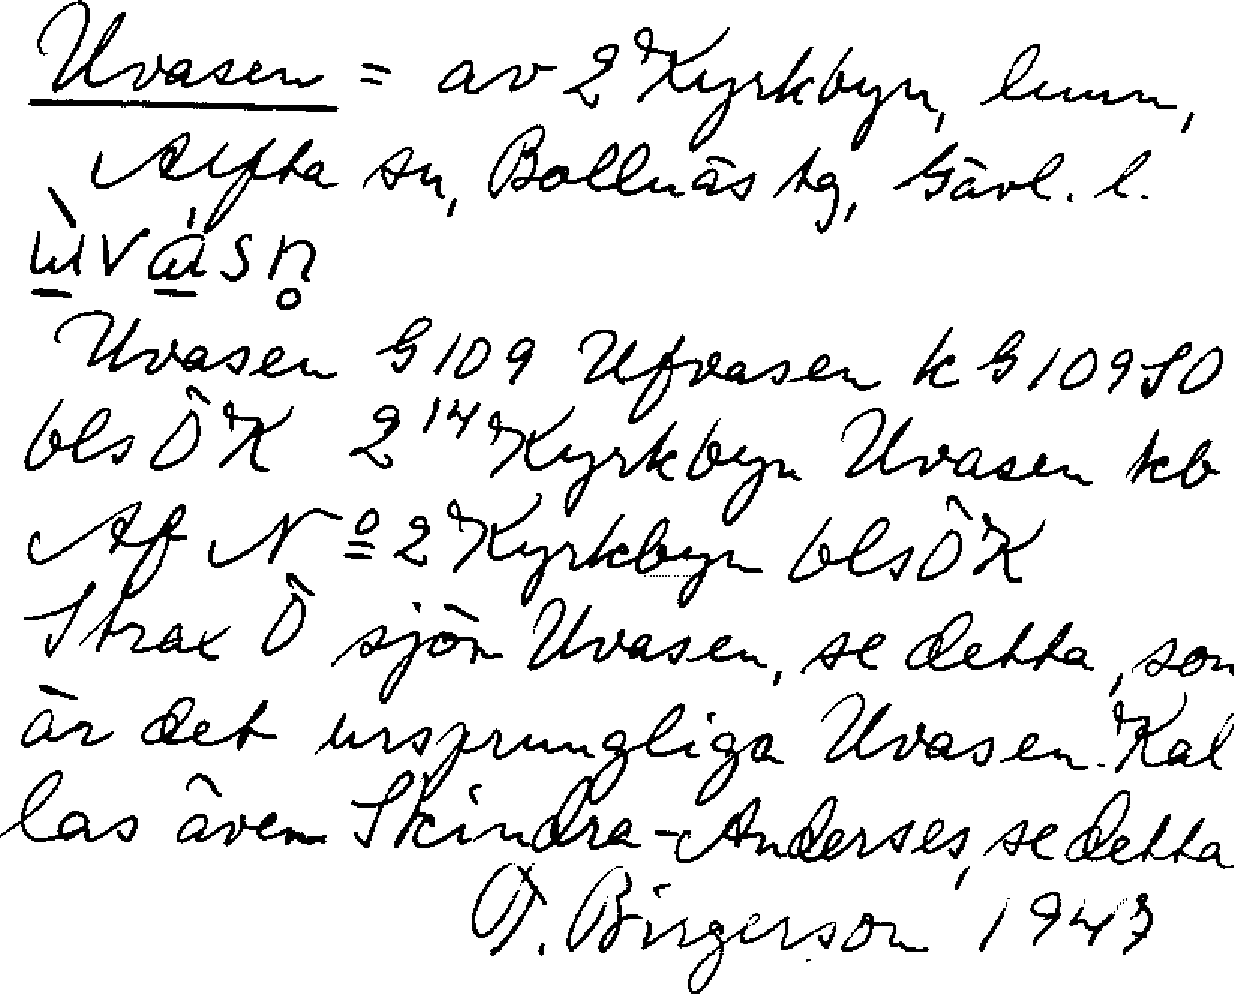 Uvasen = av 2 Kyrkbyn,
Alfta sn, Bollnäs tg, Gävl. l.
Uvasen G 109 Ufvasen k G 109 SO
bls ÖK 2 14 Kyrkbyn Uvasen kb
Af Nº 2 Kyrkbyn bls ÖK
Strax Ö sjön Uvasen, se detta, som
är det ursprungliga Uvasen. Kal
las även Skindra-Anderses, se detta
Birgerson 1947